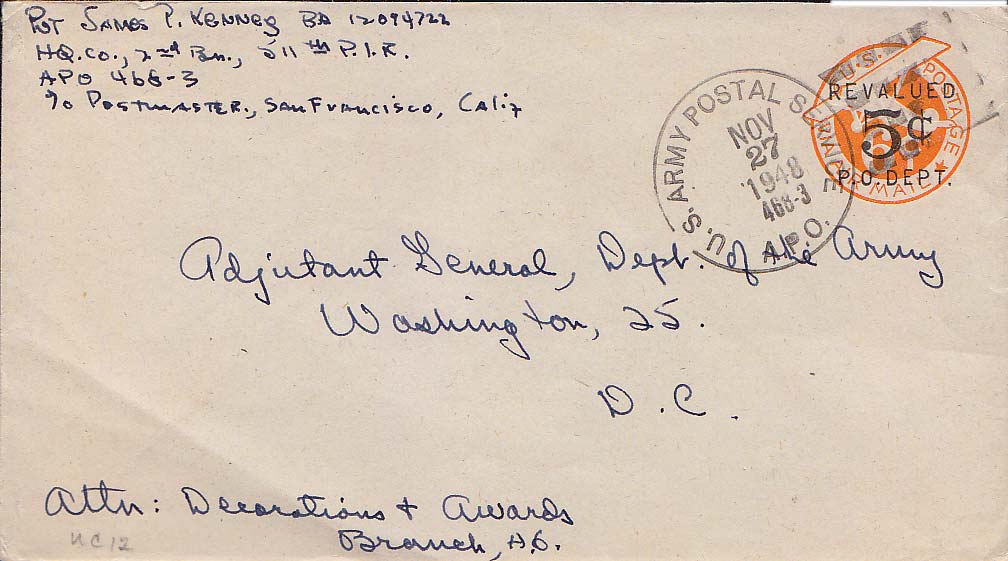 Pvt James P. Kenney BA 12094722
HQ.Co., 2nd Bn., 511th P.I.R.
APO 468-3
c/o Postmaster, San Francisco, Calif
U.S. POSTAGE
REVALUED
5¢
6¢
P.O. DEPT.
AIR MAIL
U.S. ARMY POSTAL SERVICE
NOV
27
1948
468-3
A.P.O.
Adjutant General, Dept. of the Army
Washington, 25.
D.C.
Attn: Decorations & Awards
Branch,
UC12